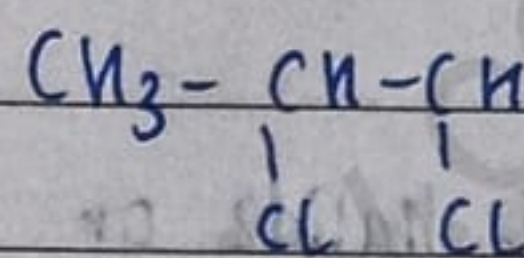 CH3 - CH - CH
Cl Cl